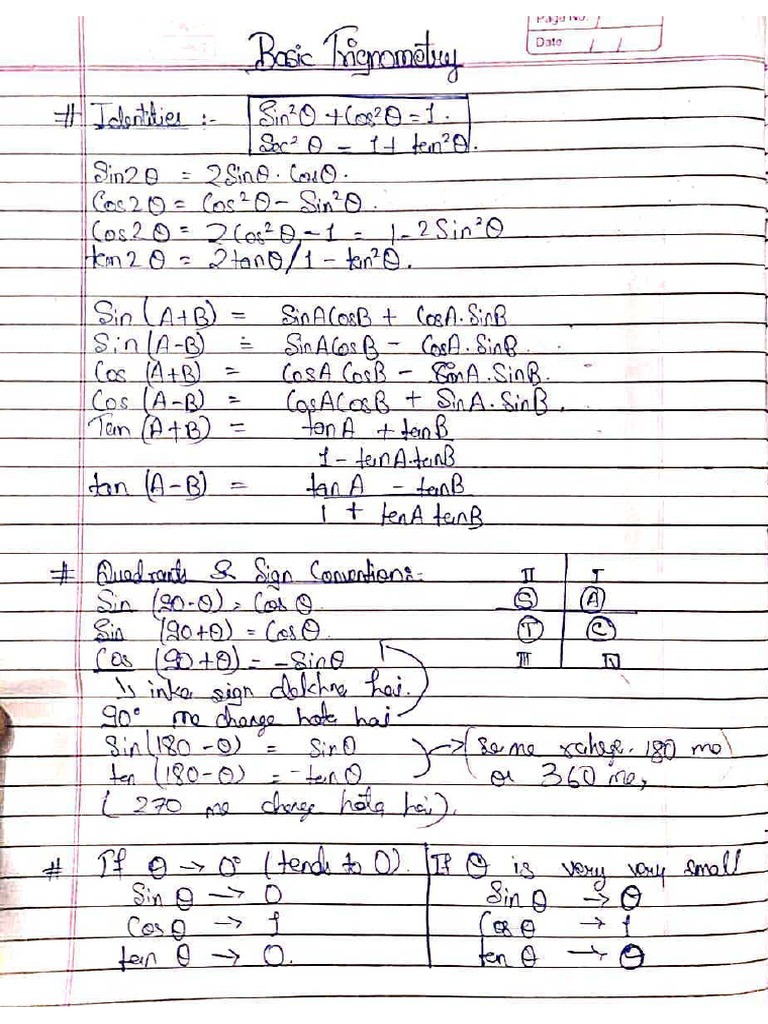 Page No.
Date / /
Basic Trignometry
# Identities :- Sin²θ + Cos²θ = 1.
Sec²θ = 1 + tan²θ.
Sin2θ = 2Sinθ. Cosθ.
Cos2θ = Cos²θ - Sin²θ.
Cos2θ = 2Cos²θ - 1 = 1 - 2Sin²θ
tan2θ = 2tanθ/1 - tan²θ.
Sin (A+B) = SinACosB + CosA.SinB
Sin (A-B) = SinACosB - CosA.SinB.
Cos (A+B) = CosA CosB - SinA.SinB.
Cos (A-B) = CosACosB + SinA.SinB.
Tan (A+B) = tanA + tanB
1 - tanA.tanB
tan (A-B) = tanA - tanB
1 + tanA tanB
# Quadrants & Sign Conventions:-
II I
Sin (90-θ) = Cosθ.
S A
Sin (90+θ) = Cosθ.
T C
Cos (90+θ) = -Sinθ
III IV
↳ inka sign dekhna hai.
90° me change hota hai
Sin(180-θ) = Sinθ
tan (180-θ) = -tanθ
→ (Same rahega. 180 me
or 360 me,
( 270 me change hota hai).
# If θ → 0° (tends to 0). If θ is very very small
Sin θ → 0 Sin θ → θ
Cosθ → 1 Cos θ → 1
tan θ → 0. tan θ → θ